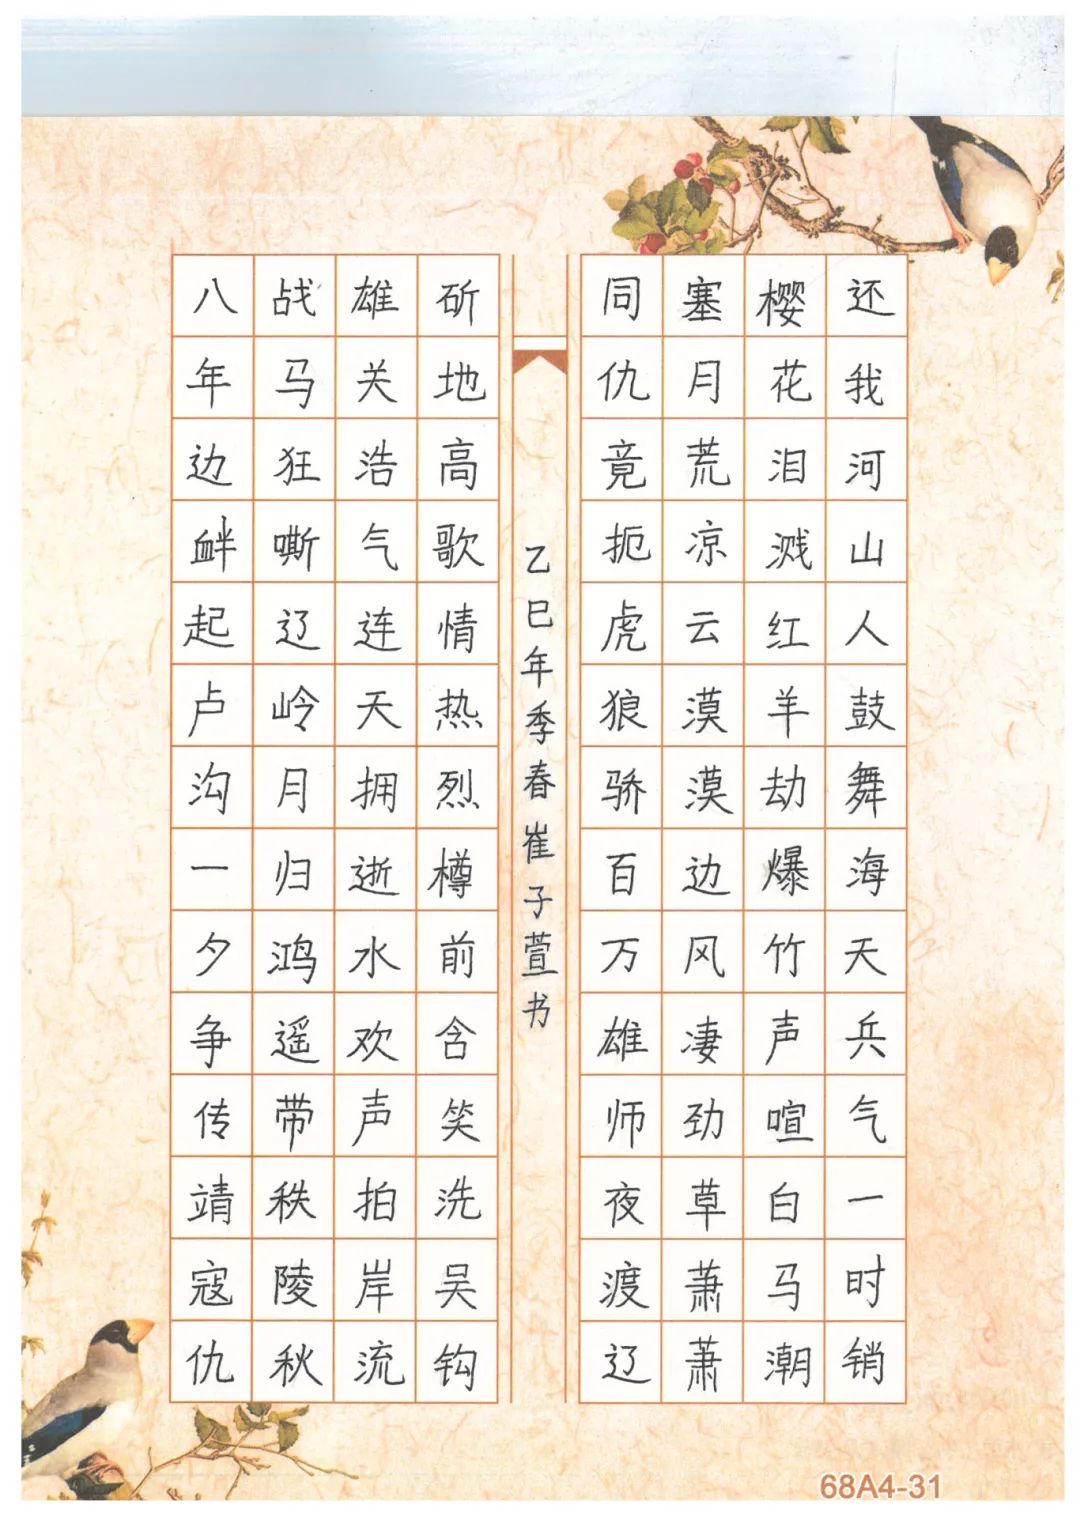 八年边衅起卢沟一夕争传靖寇仇
战马狂嘶辽岭月归鸿遥带秩陵秋
雄关浩气连天拥逝水欢声拍岸流
斫地高歌情热烈樽前含笑洗吴钩
乙巳年季春崔子萱书
同仇竟扼虎狼骄百万雄师夜渡辽
塞月荒凉云漠漠边风凄劲草萧萧
樱花泪溅红羊劫爆竹声喧白马潮
还我河山人鼓舞海天兵气一时销
68A4-31